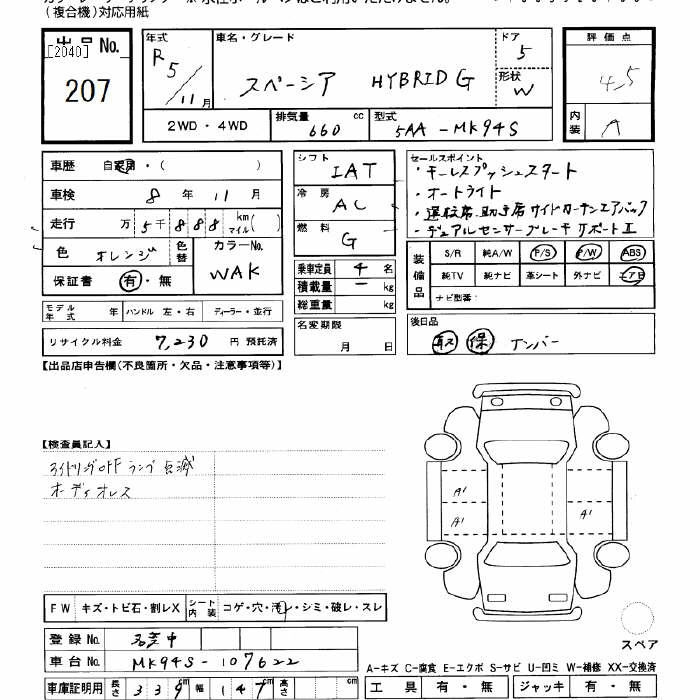 (複合機)対応用紙
出品 No.
[2040]
207
年式
R5/11月
車名・グレード
スペーシア HYBRID G
ドア
5
形状
W
評価点
4.5
内装
A
2WD・4WD
排気量 660 cc
型式 5AA-MK94S
車歴 自家用・( )
車検 8年 11月
走行 万5千888 km マイル( )
色 オレンジ
色替
カラーNo.
WAK
保証書 有・無
シフト IAT
冷房 AC
燃料 G
乗車定員 4 名
積載量 ー kg
総重量 kg
セールスポイント
・キーレスプッシュスタート
・オートライト
・運転席・助手席サイドカーテンエアバック
・デュアルセンサーブレーキサポートⅡ
装備品
S/R 純A/W P/S P/W ABS
純TV 純ナビ 革シート 外ナビ エアB
ナビ型番:
モデル年式 年 ハンドル 左・右 ディーラー・並行
リサイクル料金 7,230 円 預託済
名変期限
月 日
後日品
取 保 ナンバー
【出品店申告欄(不良箇所・欠品・注意事項等)】
【検査員記入】
アイドリングOFFランプ点滅
オーディオレス
A1
A1
A1
FW キズ・トビ石・割レX
シート内装 コゲ・穴・汚レ・シミ・破レ・スレ
登録 No.
車台 No. MK94S-107622
スペア
A-キズ C-腐食 E-エクボ S-サビ U-凹ミ W-補修 XX-交換済
車庫証明用 長さ 339 cm 幅 147 cm 高さ cm
工具 有・無 ジャッキ 有・無